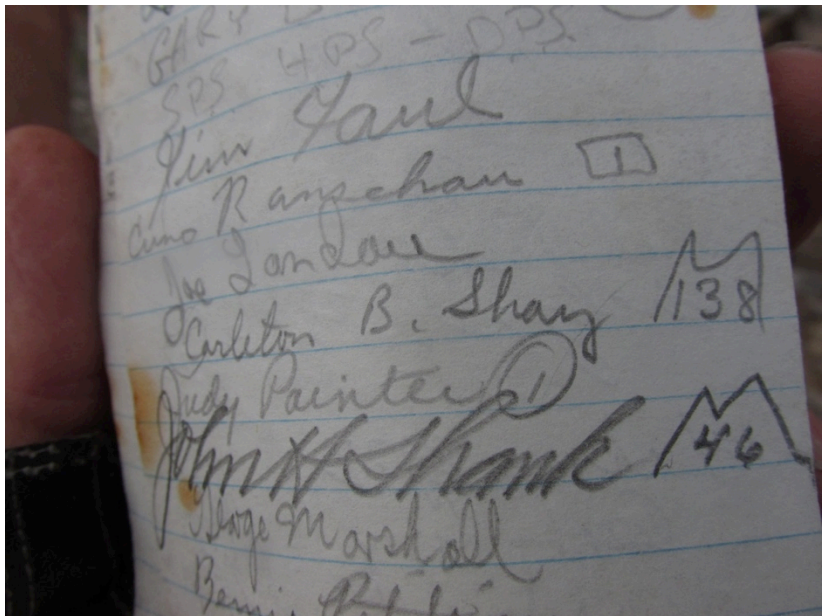 GARY
SPS HPS - DPS
Jim Yaul
Cuno Ranschau 1
Joe Landau
Carleton B. Shay 138
Judy Painter 1
John H Shank 46
George Marshall